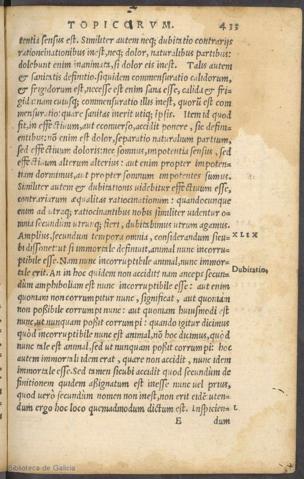 TOPICORVM. 435
tentia sensus est. Similiter autem neq; dubitatio contrarijs
ratiocinationibus inest, neq; dolor, naturalibus partibus:
dolebunt enim inanimata, si dolor eis inest. Talis autem
& sanitatis definitio. siquidem commensuratio calidorum,
& frigidorum est, necesse est enim sana esse, calida & fri
gida nam cuiusq; commensuratio illis inest, quorū est com
mensuratio: quare sanitas inerit utiq; ipsis. Item id quod
fit, in effectiuum, aut econuerso, accidit ponere, sic defini-
entibus: nō enim est dolor, separatio naturalium partium,
sed effectiuum doloris: nec somnus, impotentia sensus, sed
effectiuum alterum alterius: aut enim propter impoten-
tiam dormimus, aut propter somnum impotentes sumus.
Similiter autem & dubitationis uidebitur effectiuum esse,
contrariarum æqualitas ratiocinationum: quandocunque
enim ad utraq; ratiocinantibus nobis similiter uidentur o-
mnia secundum utrunq; fieri, dubitabimus utrum agamus.
Amplius, secundum tempora omnia, considerandum sicu-
bi dissonet: ut si immortale definiat, animal nunc incorru-
ptibile esse. Nam nunc incorruptibile animal, nunc immor-
tale erit. An in hoc quidem non accidit? nam anceps secun-
dum amphiboliam est nunc incorruptibile esse: aut enim
quoniam non corrumpitur nunc, significat, aut quoniam
non possibile corrumpi nunc: aut quoniam huiusmodi est
nunc, ut nunquam possit corrumpi: quando igitur dicimus
quòd incorruptibile nunc est animal, nō hoc dicimus, quòd
nunc tale est animal, sed ut nunquam possit corrumpi: hoc
autem immortali idem erat, quare non accidit, nunc idem
immortale esse. Sed tamen sicubi accidit quod secundum de
finitionem quidem assignatum est inesse nunc uel prius,
quod uerò secundum nomen non inest, non erit eidē: uten-
dum ergo hoc loco quemadmodum dictum est. Inspicien-
E dum
XLIX
Dubitatio,
L
Biblioteca de Galicia